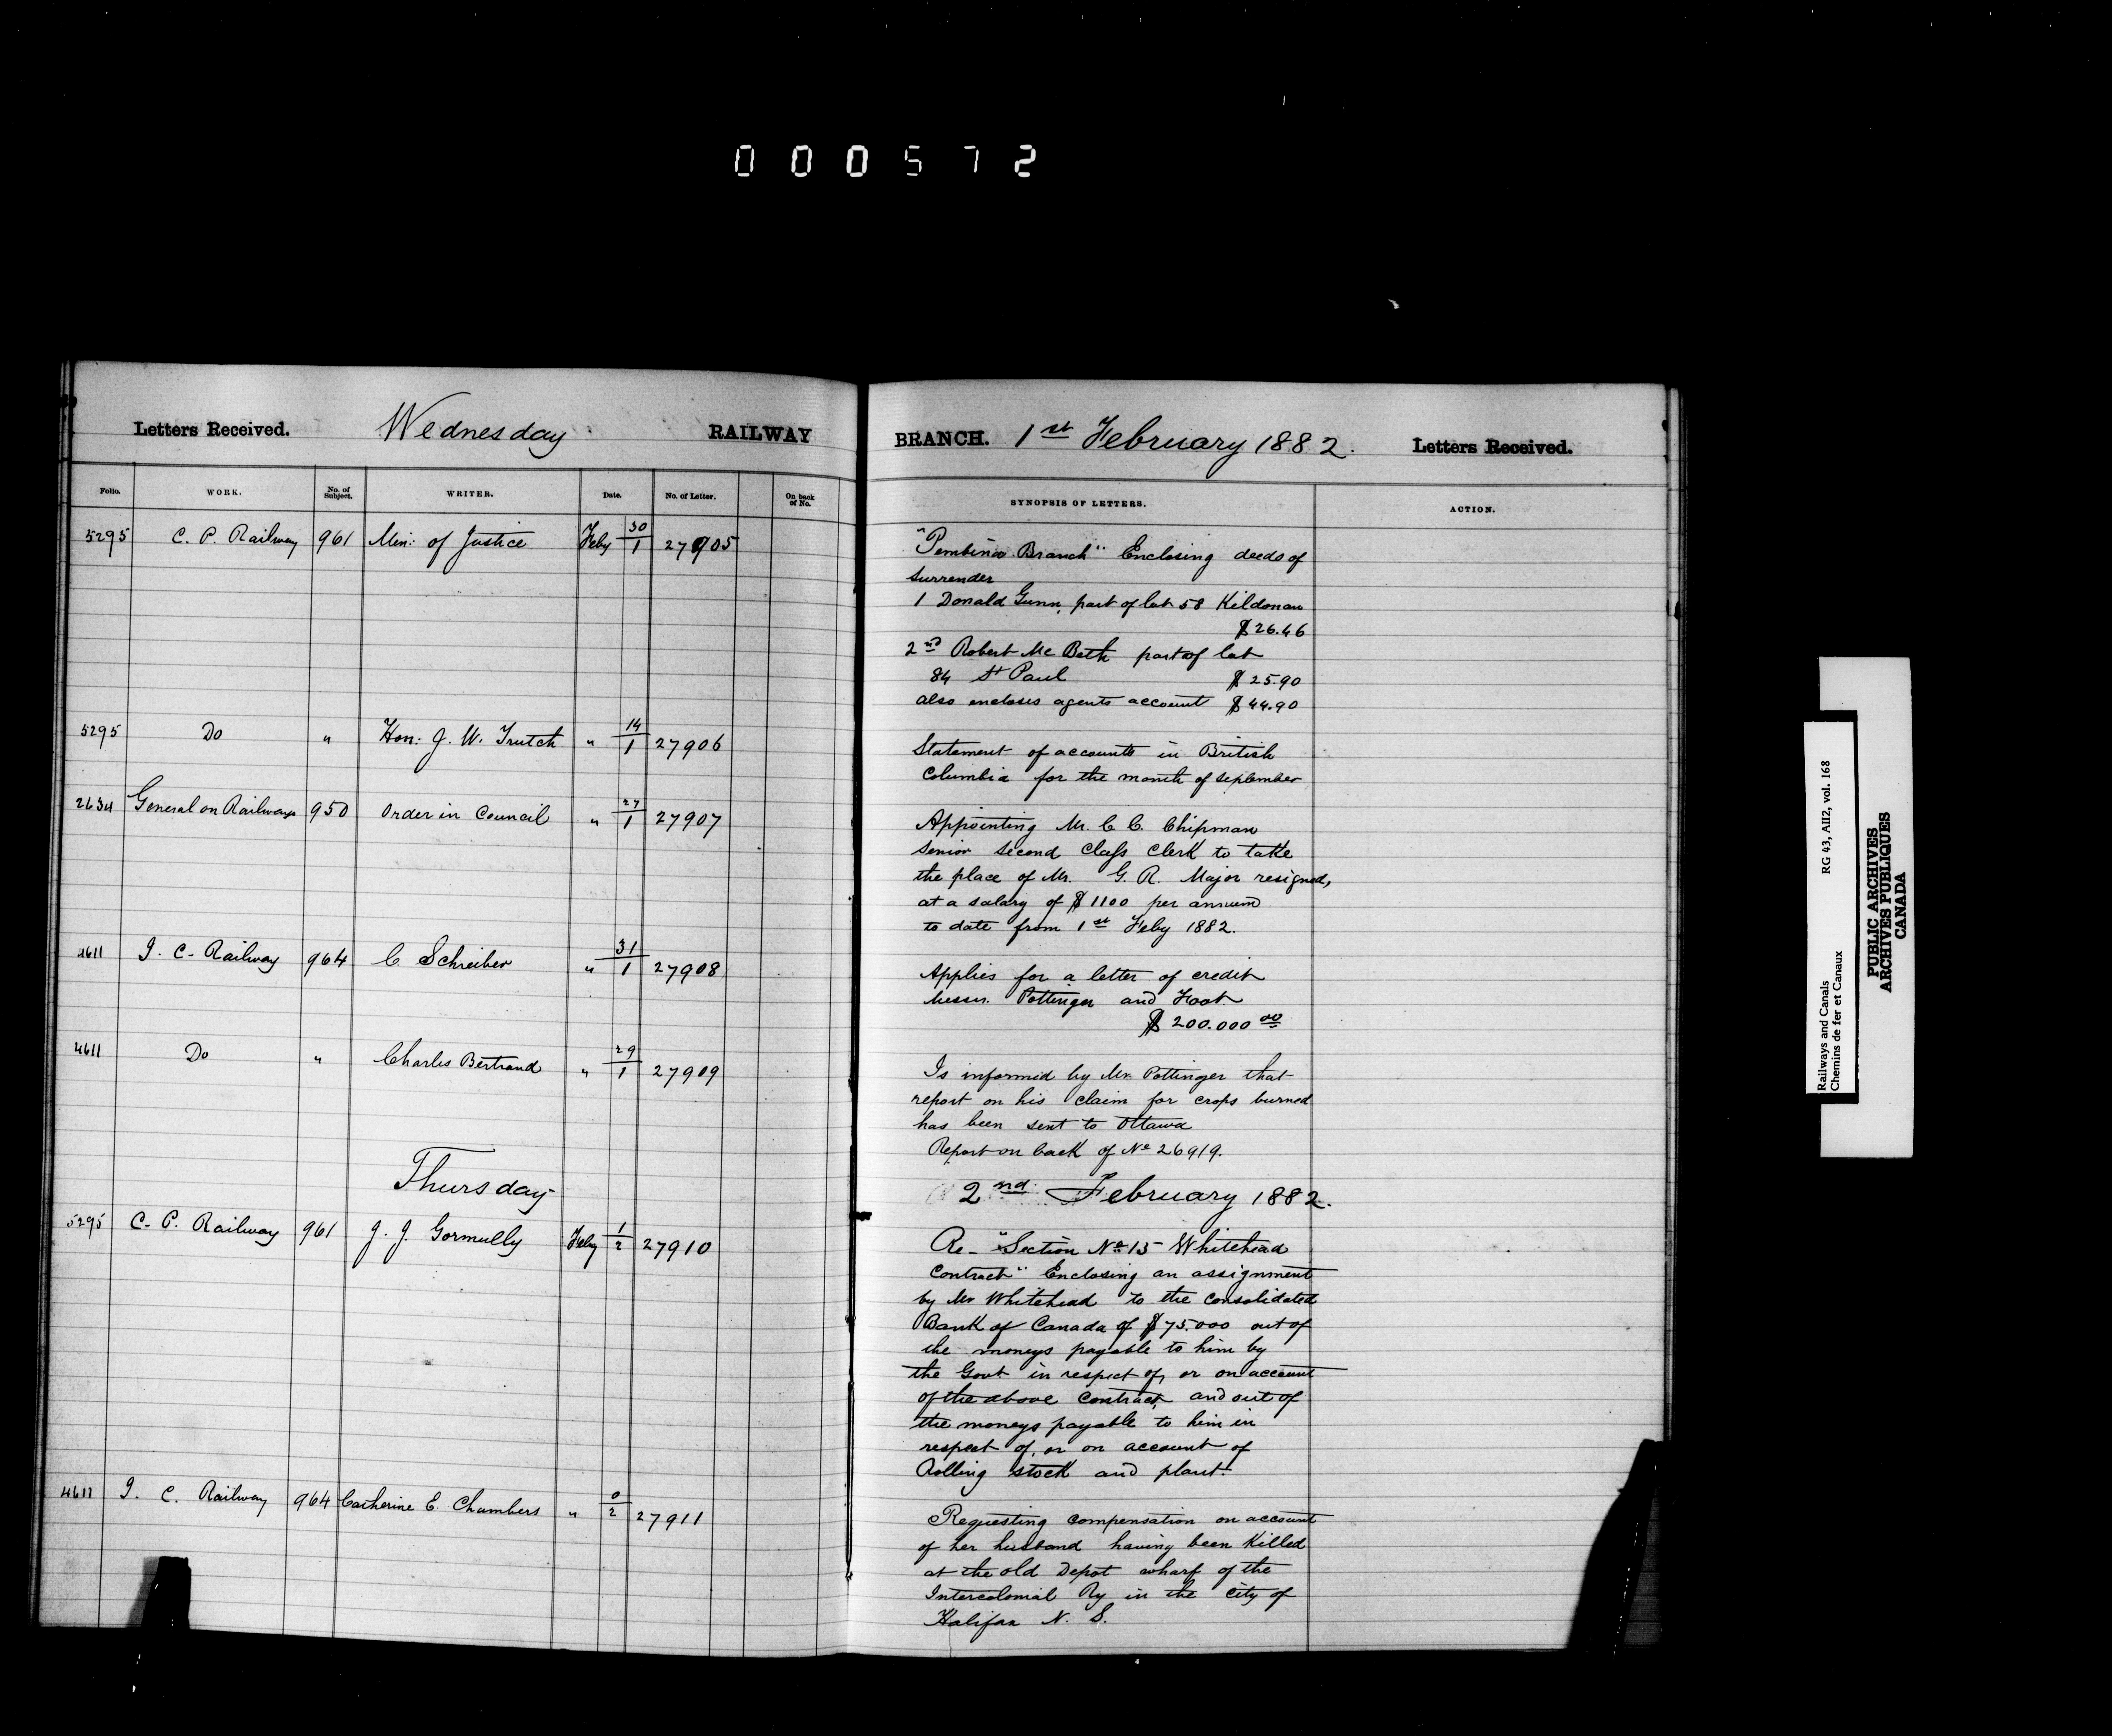 000572
Letters Received. Wednesday RAILWAY BRANCH. 1st February 1882. Letters Received.
Folio. WORK. No. of Subject. WRITER. Date. No. of Letter. On back of No. SYNOPSIS OF LETTERS. ACTION.
5295 C. P. Railway 961 Min: of Justice Feby 30/1 27905
"Pembina Branch" Enclosing deeds of
surrender
1 Donald Gunn, part of lot 58 Kildonan
$26.46
2nd Robert Mc Beth part of lot
84 St Paul $25.90
also encloses agents account $44.90
5295 Do " Hon: J. W. Trutch " 14/1 27906
Statement of accounts in British
Columbia for the month of September
2634 General on Railways 950 Order in Council " 27/1 27907
Appointing Mr. C. C. Chipman
senior second class clerk to take
the place of Mr. G. R. Major resigned,
at a salary of $1100 per annum
to date from 1st Feby 1882.
4611 I. C. Railway 964 C Schreiber " 31/1 27908
Applies for a letter of credit
Messrs. Pottinger and Foot
$200.000 00
4611 Do " Charles Bertrand " 29/1 27909
Is informed by Mr Pottinger that
report on his claim for crops burned
has been sent to Ottawa
Report on back of No 26919.
Thursday 2nd February 1882.
5295 C. P. Railway 961 J. J. Gormully Feby 1/2 27910
Re- "Section No 15 Whitehead
Contract" Enclosing an assignment
by Mr Whitehead to the Consolidated
Bank of Canada of $75.000 out of
the moneys payable to him by
the Govt in respect of, or on account
of the above Contract, and out of
the moneys payable to him in
respect of, or on account of
Rolling stock and plant.
4611 I. C. Railway 964 Catherine E. Chambers " 0/2 27911
Requesting compensation on account
of her husband having been killed
at the old Depot wharf of the
Intercolonial Ry in the City of
Halifax N. S.
Railways and Canals RG 43, AII2, vol. 168
Chemins de fer et Canaux
PUBLIC ARCHIVES
ARCHIVES PUBLIQUES
CANADA